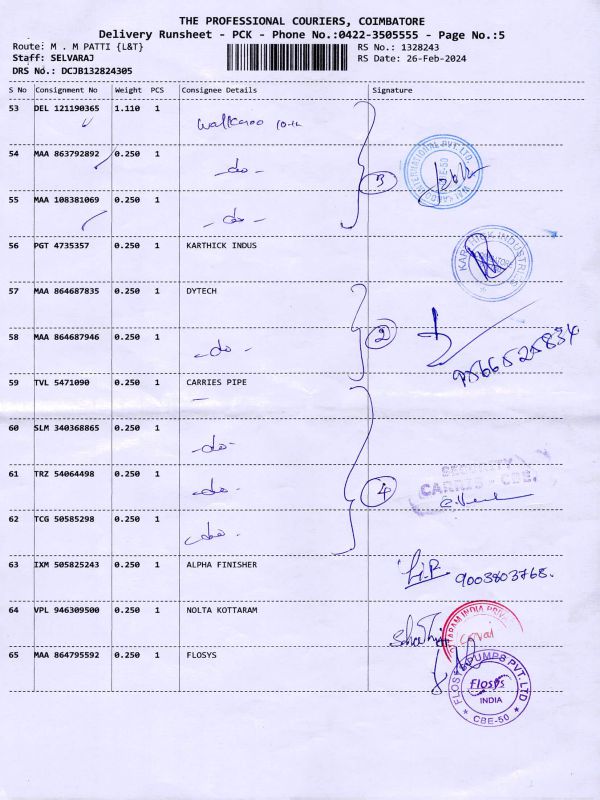 THE PROFESSIONAL COURIERS, COIMBATORE
Delivery Runsheet - PCK - Phone No.:0422-3505555 - Page No.:5
Route: M . M PATTI {L&T}
RS No.: 1328243
Staff: SELVARAJ
RS Date: 26-Feb-2024
DRS No.: DCJB132824305
S No Consignment No Weight PCS Consignee Details Signature
53 DEL 121190365 1.110 1 Walkaroo
54 MAA 863792892 0.250 1 -do-
3
55 MAA 108381069 0.250 1 -do-
56 PGT 4735357 0.250 1 KARTHICK INDUS
KARTHICK INDUSTRIES
57 MAA 864687835 0.250 1 DYTECH
58 MAA 864687946 0.250 1 -do-
2
9566525834
59 TVL 5471090 0.250 1 CARRIES PIPE
60 SLM 340368865 0.250 1 -do-
61 TRZ 54064498 0.250 1 -do-
4
SECURITY
CBE.
62 TCG 50585298 0.250 1 -do-
63 IXM 505825243 0.250 1 ALPHA FINISHER
9003803768.
64 VPL 946309500 0.250 1 NOLTA KOTTARAM
65 MAA 864795592 0.250 1 FLOSYS
FLOSYS PUMPS PVT. LTD
Flosys
INDIA
CBE-50